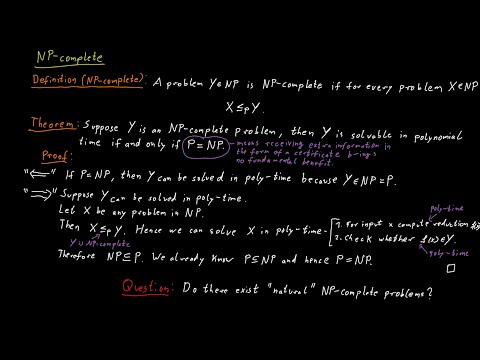 NP-complete
Definition (NP-complete): A problem Y∈NP is NP-complete if for every problem X∈NP
X ≤p Y.
Theorem: Suppose Y is an NP-complete problem, then Y is solvable in polynomial
time if and only if P=NP. - means receiving extra information in
the form of a certificate brings
no fundamental benefit.
Proof:
"⇐" If P=NP, then Y can be solved in poly-time because Y∈NP=P.
"⇒" Suppose Y can be solved in poly-time.
Let X be any problem in NP.
poly-time
Then X ≤p Y. Hence we can solve X in poly-time - 1. For input x compute reduction
Y is NP-complete
2. Check whether f(x)∈Y.
poly-time
Therefore NP⊆P. We already know P⊆NP and hence P=NP.
□
Question: Do there exist "natural" NP-complete problems?